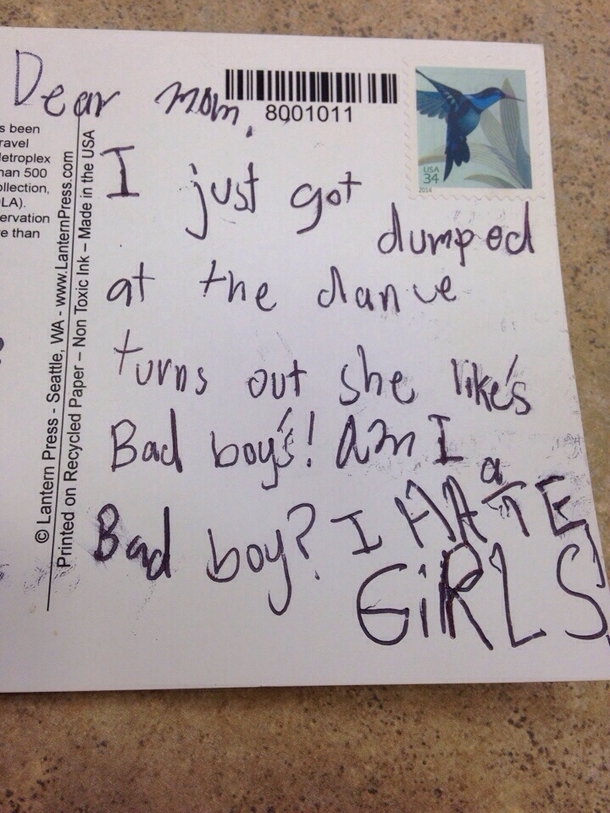 Dear mom,
8001011
USA
34
2014
I just got
dumped
at the dance
turns out she like's
Bad boy's! Am I
a
Bad boy? I HATE
GiRLS
s been
ravel
etroplex
han 500
ollection,
LA).
ervation
e than
© Lantern Press - Seattle, WA - www.LanternPress.com
Printed on Recycled Paper – Non Toxic Ink – Made in the USA